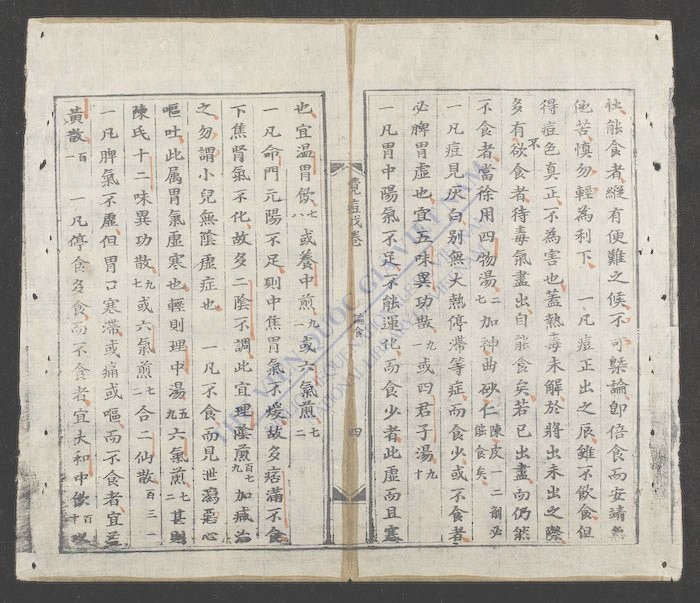 能食者縱有便難之候不可槩論即倍食而安靖無
他苦慎勿輕為利下　一凡痘正出之辰雖不飲食但
得痘色真正不為害也蓋熱毒未解於將出未出之際
多有不欲食者待毒氣盡出自能食矣若已出盡而仍然
不食者當徐用四物湯七二加神曲砂仁陳皮一二劑必能食矣
一凡痘見灰白別無大熱停滯等症而食少或不食者
必脾胃虛也宜五味異功散一九或四君子湯十九
一凡胃中陽氣不足不能運化而食少者此虛而且寒
痘 卷 論食 四
也宜温胃飲七八或養中煎九一或六氣煎七二
一凡命門元陽不足則中焦胃氣不煖故多痞滿不食
下焦腎氣不化故多二陰不調此宜理陰煎百七九加減治
之勿謂小兒無陰虛症也　一凡不食而見泄瀉惡心
嘔吐此属胃氣虛寒也輕則理中湯五九六氣煎七二甚則
陳氏十二味異功散九七或六氣煎七二合二仙散百三一
一凡脾氣不虛但胃口寒滯或痛或嘔而不食者宜益
黄散百一　一凡停食多食而不食者宜大和中飲百十
THƯ VIỆN QUỐC GIA VIỆT NAM